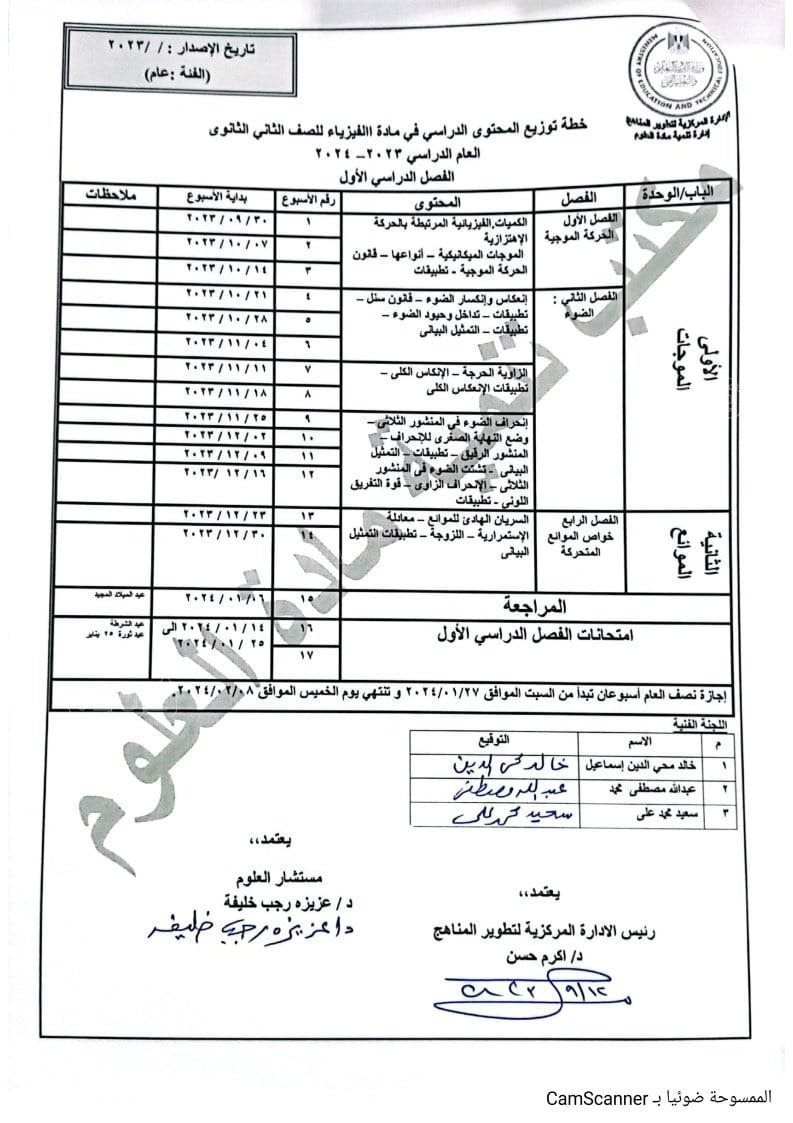 تاريخ الإصدار : / /٢٠٢٣
(الفئة :عام)
MINISTRY OF EDUCATION AND TECHNICAL EDUCATION
الإدارة المركزية لتطوير المناهج
إدارة تنمية مادة العلوم
خطة توزيع المحتوى الدراسي في مادة االفيزياء للصف الثاني الثانوى
العام الدراسي ٢٠٢٣– ٢٠٢٤
الفصل الدراسي الأول
الباب/الوحدة الفصل المحتوى رقم الأسبوع بداية الأسبوع ملاحظات
الأولى
الموجات
الفصل الأول
الحركة الموجية
الكميات الفيزيائية المرتبطة بالحركة
الإهتزازية
الموجات الميكانيكية – أنواعها – قانون
الحركة الموجية - تطبيقات
١ ٣٠ / ٠٩ / ٢٠٢٣
٢ ٠٧ / ١٠ / ٢٠٢٣
٣ ١٤ / ١٠ / ٢٠٢٣
الفصل الثاني :
الضوء
إنعكاس وإنكسار الضوء – قانون سنل –
تطبيقات – تداخل وحيود الضوء –
تطبيقات – التمثيل البيانى
٤ ٢١ / ١٠ / ٢٠٢٣
٥ ٢٨ / ١٠ / ٢٠٢٣
٦ ٠٤ / ١١ / ٢٠٢٣
الزاوية الحرجة – الإنكاس الكلى –
تطبيقات الإنعكاس الكلى
٧ ١١ / ١١ / ٢٠٢٣
٨ ١٨ / ١١ / ٢٠٢٣
إنحراف الضوء في المنشور الثلاثى –
وضع النهاية الصغرى للإنحراف –
المنشور الرقيق – تطبيقات – التمثيل
البيانى - تشتت الضوء فى المنشور
الثلاثى – الإنحراف الزاوى – قوة التفريق
اللونى - تطبيقات
٩ ٢٥ / ١١ / ٢٠٢٣
١٠ ٠٢ / ١٢ / ٢٠٢٣
١١ ٠٩ / ١٢ / ٢٠٢٣
١٢ ١٦ / ١٢ /٢٠٢٣
الثانية
الموائع
الفصل الرابع
خواص الموائع
المتحركة
السريان الهادئ للموائع – معادلة
الإستمرارية – اللزوجة – تطبيقات التمثيل
البيانى
١٣ ٢٣ / ١٢ / ٢٠٢٣
١٤ ٣٠ / ١٢ / ٢٠٢٣
المراجعة ١٥ ٠٦ /٠١ / ٢٠٢٤ عيد الميلاد المجيد
امتحانات الفصل الدراسي الأول
١٦ ١٤ /٠١ / ٢٠٢٤ الى
١٧ ٢٥ /٠١ / ٢٠٢٤
عيد الشرطة
عيد ثورة ٢٥ يناير
إجازة نصف العام أسبوعان تبدأ من السبت الموافق ٢٠٢٤/٠١/٢٧ و تنتهي يوم الخميس الموافق ٢٠٢٤/٠٢/٠٨.
اللجنة الفنية
م الاسم التوقيع
١ خالد محي الدين إسماعيل خالد محى الدين
٢ عبدالله مصطفى محمد عبد الله مصطفى
٣ سعيد محمد على سعيد محمد على
يعتمد،،
مستشار العلوم
د/ عزيزه رجب خليفة
د/عزيزه رجب خليفه
يعتمد،،
رئيس الادارة المركزية لتطوير المناهج
د/ اكرم حسن
مكتب تنمية مادة العلوم
الممسوحة ضوئيا بـ CamScanner